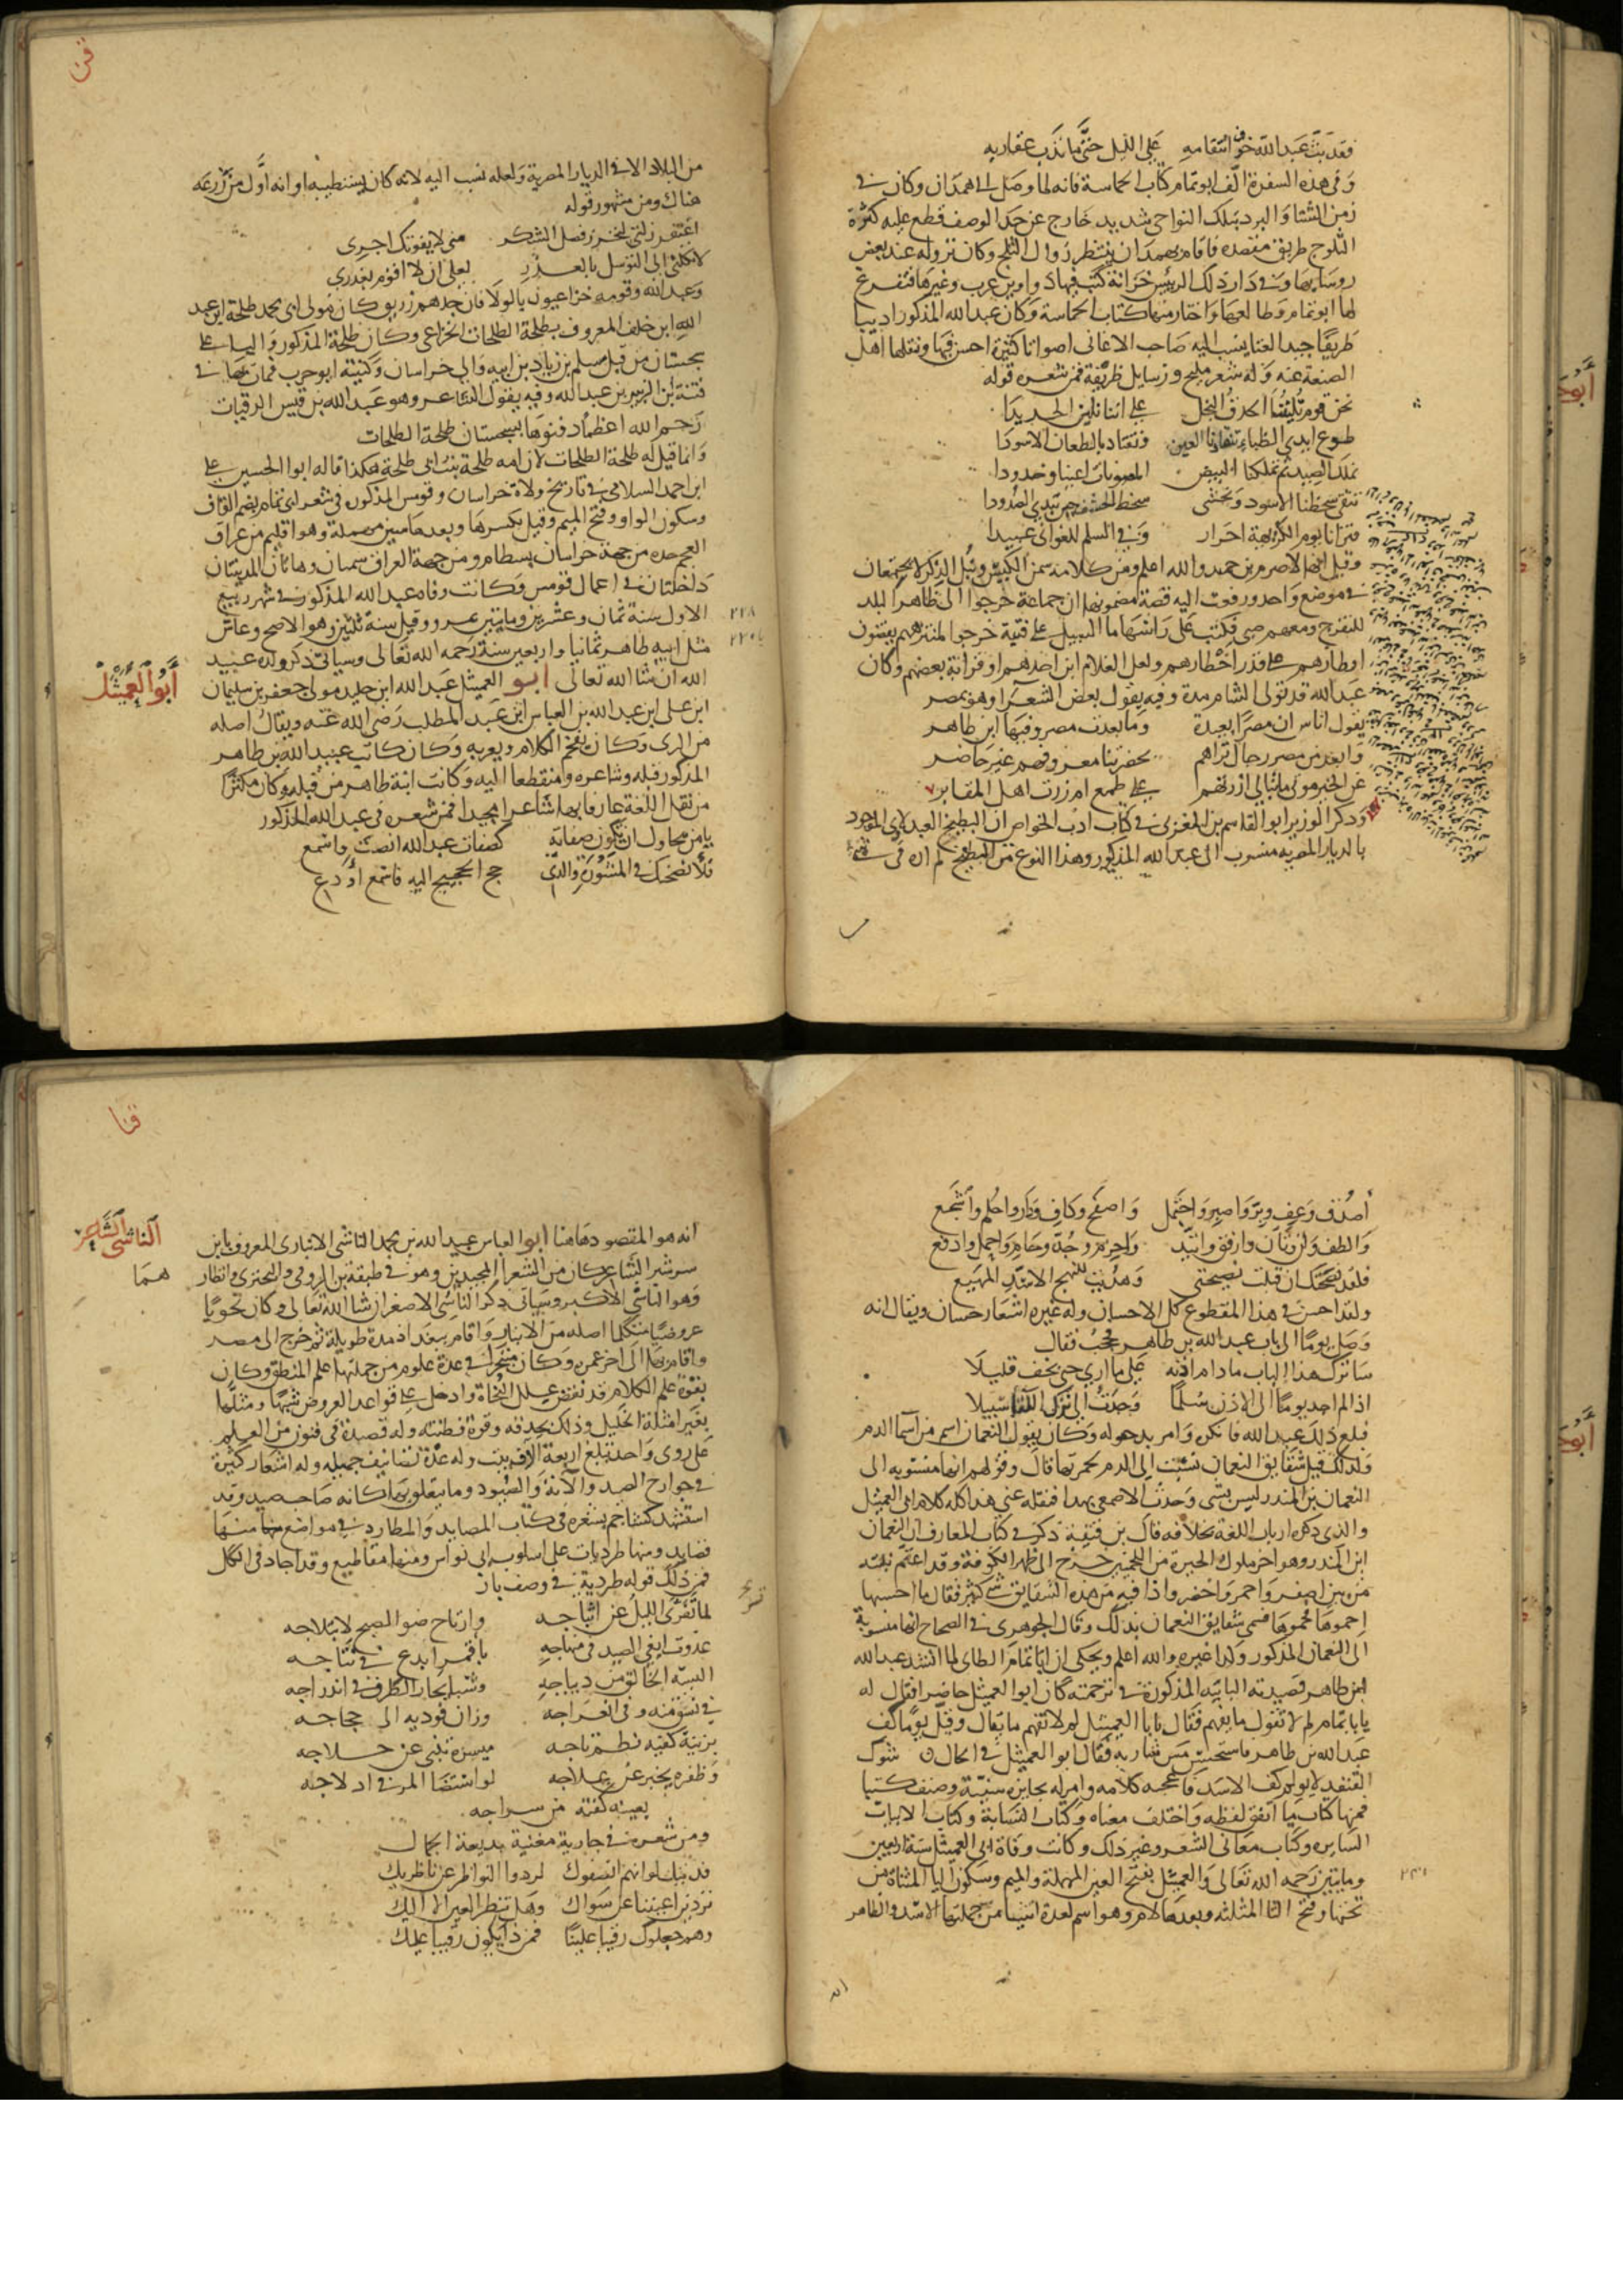 فقد بث عبد الله خوف انتقامه على الليل حتى ما تدب عقاربه
وفي هذه السفرة الف ابو تمام كتاب الحماسة فانه لما وصل الى همدان وكان في
زمن الشتا والبرد بتلك النواحي شديد خارج عن حد الوصف قطع عليه كثرة
الثلوج طريق مقصده فاقام بهمدان ينتظر زوال الثلج وكان نزوله عند بعض
روسايها وفي دار ذلك الرييس خزانة كتب فيها دواوين عرب وغيرها فتفرغ
لها ابو تمام وطالعها واختار منها كتاب الحماسة وكان عبد الله المذكور اديبا
ظريفا جيد الغنا ينسب اليه صاحب الاغاني اصواتا كثيرة احسن فيها ونقلها اهل
الصنعة عنه وله شعر مليح ورسايل ظريفة فمن شعره قوله
نحن قوم تليننا الحدق النجل على اننا نلين الحديدا
طوع ايدي الظباء تقتادنا العين ونقتاد بالطعان الاسودا
نملك الصيد ثم تملكنا البيض المصونات اعينا وخدودا
تتقي سخطنا الاسود ونخشى سخط الخشف حين يبدي الصدودا
فترانا يوم الكريهة احرار وفي السلم للغواني عبيدا
وقيل انها لاصرم بن حميد والله اعلم ومن كلامه سمن الكيس ونبل الذكر لا يجتمعان
في موضع واحد ورفعت اليه قصة مضمونها ان جماعة خرجوا الى ظاهر البلد
للتفرج ومعهم صبي فكتب على راسها ما السبيل على فتية خرجوا لمتنزههم يقضون
اوطارهم على قدر اخطارهم ولعل الغلام ابن احدهم او قرابة بعضهم وكان
عبد الله قد تولى الشام مدة وفيه يقول بعض الشعرا وهو بمصر
يقول اناس ان مصرا بعيدة وما بعدت مصر وفيها ابن طاهر
وابعد من مصر رجال تراهم بحضرتنا معروفهم غير حاضر
عن الخير موتى ما تبالي ازرتهم على طمع ام زرت اهل المقابر
وذكر الوزير ابو القاسم بن المغربي في كتاب ادب الخواص ان البطيخ العبدلاوي الموجود
بالديار المصرية منسوب الى عبد الله المذكور وهذا النوع من البطيخ لم اره في شيء
قن
من البلاد الا في الديار المصرية ولعله نسب اليه لانه كان يستطيبه او انه اول من زرعه
هناك ومن مشهور قوله
اغتفر زلتي لتحرز فضل الشكر مني لا يفوتك اجري
لا تكلني الى التوسل بالعذر لعلي ان لا اقوم بعذري
وعبد الله وقومه خزاعيون بالولا فان جدهم زريق كان مولى ابي محمد طلحة ابن عبد
الله ابن خلف المعروف بطلحة الطلحات الخزاعي وكان طلحة المذكور واليا على
سجستان من قبل سلم بن زياد بن ابيه والي خراسان وكنيته ابو حرب فمات بها في
فتنة ابن الزبير بن عبد الله وفيه يقول الشاعر وهو عبد الله بن قيس الرقيات
رحم الله اعظما دفنوها بسجستان طلحة الطلحات
وانما قيل له طلحة الطلحات لان امه طلحة بنت ابي طلحة هكذا قاله ابو الحسين علي
ابن احمد السلامي في تاريخ ولاة خراسان وقومس المذكور في شعر ابي تمام بضم القاف
وسكون الواو وفتح الميم وقيل بكسرها وبعدها سين مهملة وهو اقليم من عراق
العجم حده من جهة خراسان بسطام ومن جهة العراق سمنان وهاتان المدينتان
داخلتان في اعمال قومس وكانت وفاه عبد الله المذكور في شهر ربيع
الاول سنة ثمان وعشرين وماتين بمرو وقيل سنة ثلثين وهو الاصح وعاش
٢٢٨
مثل ابيه طاهر ثمانيا واربعين سنة رحمه الله تعالى وسياتي ذكر ولده عبيد
الله ان شا الله تعالى ابو العميثل عبد الله ابن خليد مولى جعفر بن سليمان
أبو العميثل
ابن علي ابن عبد الله بن العباس ابن عبد المطلب رضي الله عنه ويقال اصله
من الري وكان يفخم الكلام ويعربه وكان كاتب عبد الله بن طاهر
المذكور قبله وشاعره ومنقطعا اليه وكانت ابنة طاهر من قبله وكان مكثرا
من نقل اللغة عارفا بها شاعرا مجيدا فمن شعره في عبد الله المذكور
يا من يحاول ان تكون صفاته كصفات عبد الله انصت واسمع
فلأنصحنك في المشورة والذي حج الحجيج اليه فاسمع او دع
أصدق وعف وبر واصبر واحتمل واصفح وكاف ودار واحلم واشجع
والطف ولن وتأن وارفق واتئد واحزم وجد وحام واحمل وادفع
فلقد نصحتك ان قبلت نصيحتي وهديت للنهج الاسد المهيع
ولقد احسن في هذا المقطوع كل الاحسان وله غيره اشعار حسان ويقال انه
وصل يوما الى باب عبد الله بن طاهر فحجب فقال
ساترك هذا الباب ما دام اذنه على ما اري حتى يخف قليلا
اذا لم اجد يوما الى الاذن سلما وجدت الى ترك اللقا سبيلا
فبلغ ذلك عبد الله فانكره وامر بدخوله وكان يقول النعمان اسم من اسما الدم
ولذلك قيل شقايق النعمان نسبت الى الدم لحمرتها قال وقولهم انها منسوبه الى
النعمان بن المنذر ليس بشي وحدثت الاصمعي بهذا فنقله عني هذا كله كلام ابي العميثل
والذي ذكره ارباب اللغة بخلافه قال بن قتيبة ذكر في كتاب المعارف ان النعمان
ابن المنذر وهو اخر ملوك الحيرة من اللخميين خرج الى ظهر الكوفة وقد اعتم نبته
من بين اصفر واحمر واخضر واذا فيه من هذه الشقايق شي كثير فقال ما احسنها
احموها فحموها فسمي شقايق النعمان بذلك وقال الجوهري في الصحاح انها منسوبة
الى النعمان المذكور وكذا غيره والله اعلم ويحكى ان ابا تمام الطاي لما انشد عبد الله
ابن طاهر قصيدته البائيه المذكورة في ترجمته كان ابو العميثل حاضرا فقال له
يا با تمام لم لا تقول ما يفهم فقال يا با العميثل لم لا تفهم ما يقال وقبل يوما كف
عبد الله بن طاهر فاستخشن مس شاربه فقال ابو العميثل في الحال شوك
القنفد لا يولم كف الاسد فاعجبه كلامه وامر له بجايزة سنية وصنف كتبا
فمنها كتاب ما اتفق لفظه واختلف معناه وكتاب التشابه وكتاب الابيات
السايره وكتاب معاني الشعر وغير ذلك وكانت وفاة ابي العميثل سنة اربعين
وماتين رحمه الله تعالى والعميثل بفتح العين المهملة والميم وسكون اليا المثناة من
تحتها وفتح الثا المثلثه وبعدها لام وهو اسم لعدة اشيا من جملتها الاسد والظاهر
قنا
انه هو المقصود هاهنا ابو العباس عبد الله بن محمد الناشي الانباري المعروف بابن
الناشي الشاعر
سرشير الشاعر كان من الشعرا المجيدين وهو في طبقة بن الرومي والبحتري وانظارهما
وهو الناشي الاكبر وسياتي ذكر الناشي الاصغر ان شا الله تعالى وكان نحويا
عروضيا متكلما اصله من الانبار واقام ببغداد مدة طويلة ثم خرج الى مصر
واقام بها الى اخر عمره وكان متبحرا في عدة علوم من جملتها علم المنطق وكان
بقوة علم الكلام قد نقض علل النحاة وادخل على قواعد العروض شبها ومثلها
بغير امثلة الخليل وذلك بحذقه وقوة فطنته وله قصيدة في فنون من العلم
على روي واحد تبلغ اربعة آلاف بيت وله عدة تصانيف جميله وله اشعار كثيرة
في جوارح الصيد والآته والصيود وما يتعلق بها كانه صاحب صيد وقد
استشهد كشاجم بشعره في كتاب المصايد والمطارد في مواضع منها
قصايد ومنها طرديات على اسلوب ابي نواس ومنها مقاطيع وقد اجاد في الكل
فمن ذلك قوله طردية في وصف باز
لما تفرى الليل عن اثباجه وارتاح ضو الصبح لابتلاجه
غدوت ابغي الصيد في منهاجه باقمر ابدع في نتاجه
البسه الخالق من ديباجه وشيا يحار الطرف في اندراجه
في نسق منه وفي انعراجه وزان فوديه الى حجاجه
بزينة كفته نظم تاجه ميسره تنبي عن خلاجه
وظفره يخبر عن علاجه لو استضا المر في ادلاجه
بعينه كفته من سراجه
ومن شعره في جارية مغنية بديعة الجمال
فديتك لو انهم انصفوك لردوا النواظر عن ناظريك
تردين اعيننا عن سواك وهل تنظر العين الا اليك
وهم جعلوك رقيبا علينا فمن ذا يكون رقيبا عليك